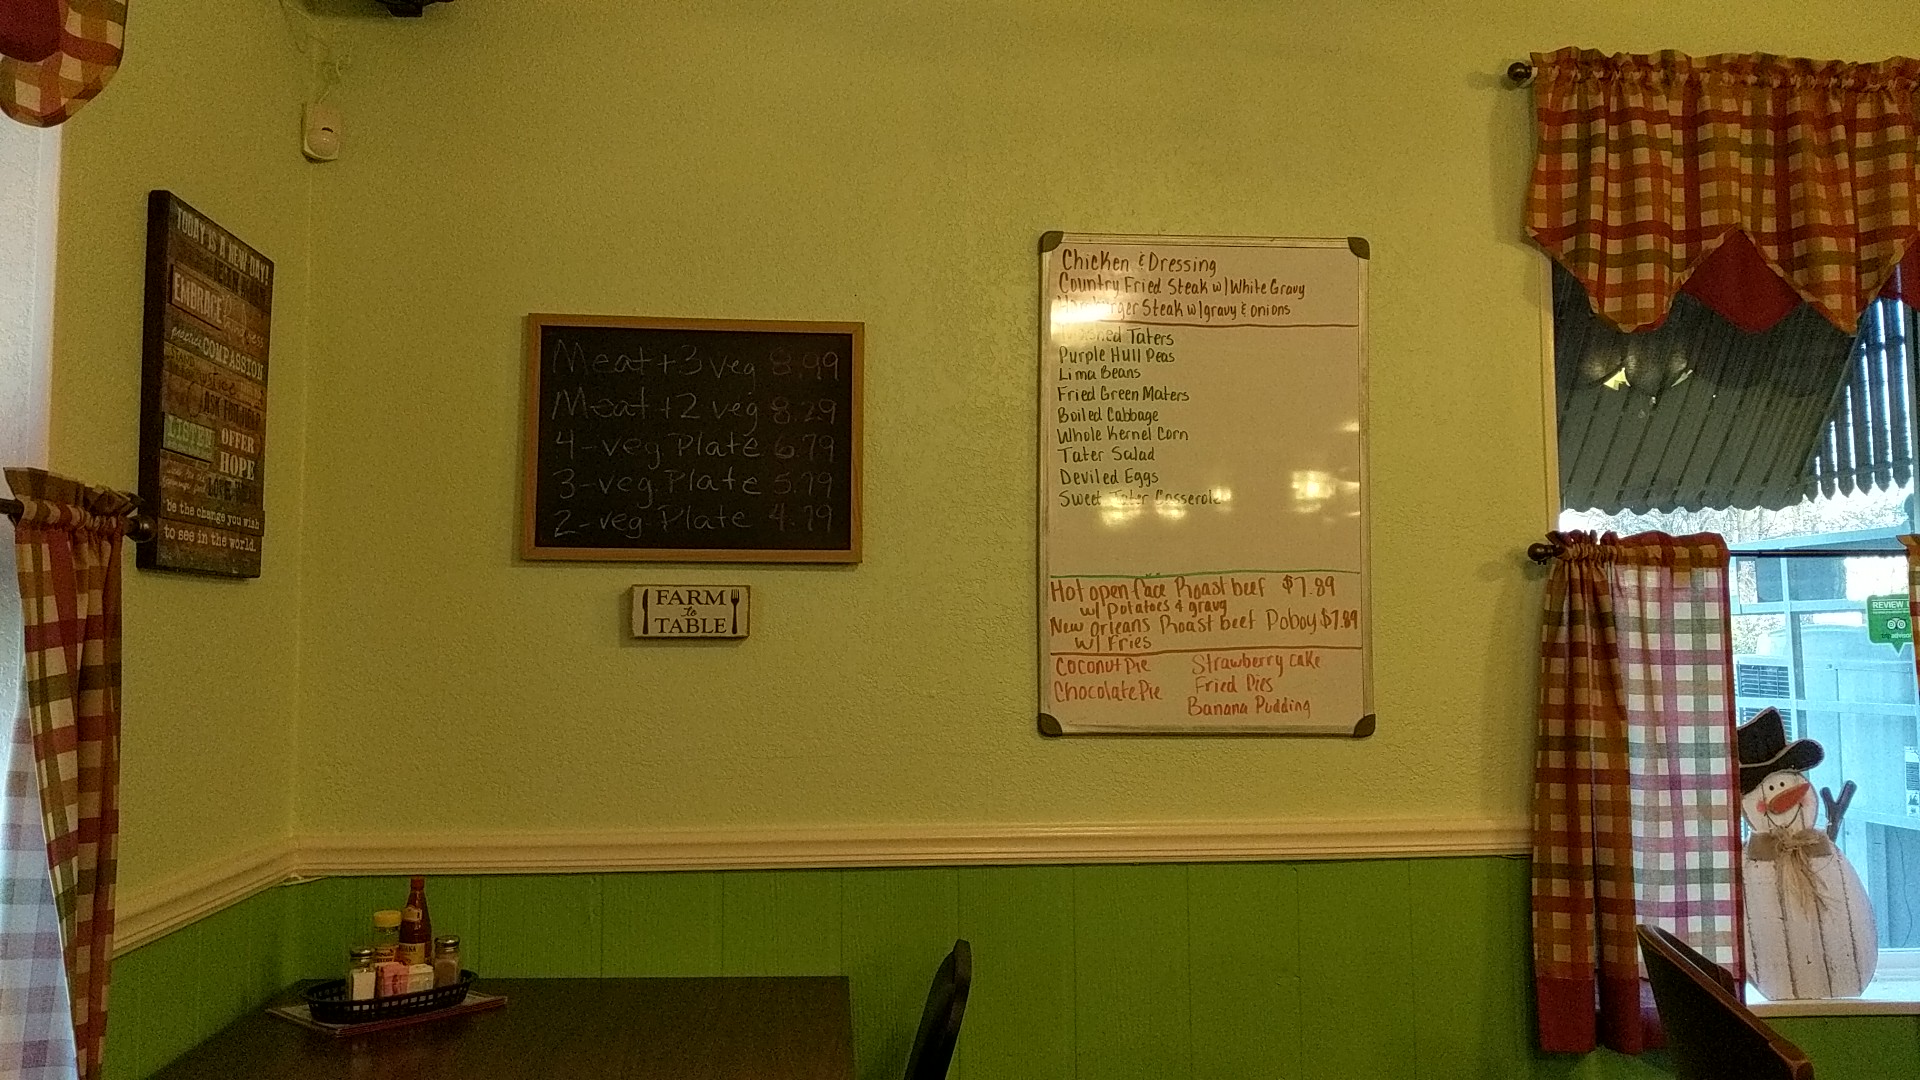 TODAY IS A NEW DAY!
EMBRACE
COMPASSION
JUSTICE
ASK FOR HELP
LISTEN OFFER
HOPE
be the change you wish
to see in the world.
Meat + 3 veg 8.99
Meat + 2 veg 8.29
4-veg Plate 6.79
3-veg. Plate 5.79
2-veg Plate 4.79
FARM
to
TABLE
Chicken & Dressing
Country Fried Steak w/ White Gravy
Hamburger Steak w/gravy & onions
Taters
Purple Hull Peas
Lima Beans
Fried Green Maters
Boiled Cabbage
Whole Kernel Corn
Tater Salad
Deviled Eggs
Sweet Tater Casserole
Hot open face Roast beef $7.89
w/ Potatoes & gravy
New Orleans Roast beef Poboy $7.89
w/ Fries
Coconut Pie Strawberry cake
Chocolate Pie Fried Pies
Banana Pudding
REVIEW